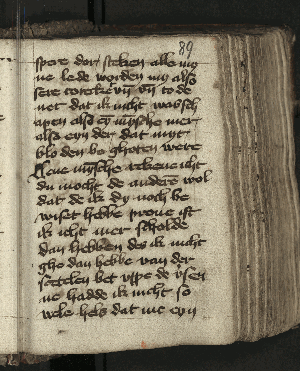 89
spere dor steken alle my
ne lede worden my also
sere
net dat ik nicht was
apen also eyn mysche mer
also eyn der dat myt
blo den be ghoten were
mysche rekene icht
du mocht de anderē wol
dat de ik dy noch be
wiset hebbe proue ift
ik icht mer scholde
dan hebben des ik nicht
ghe dan hebbe van der
scetelen bet vppe de vsen
ne hadde ik nicht so
vele hels dat me eyn